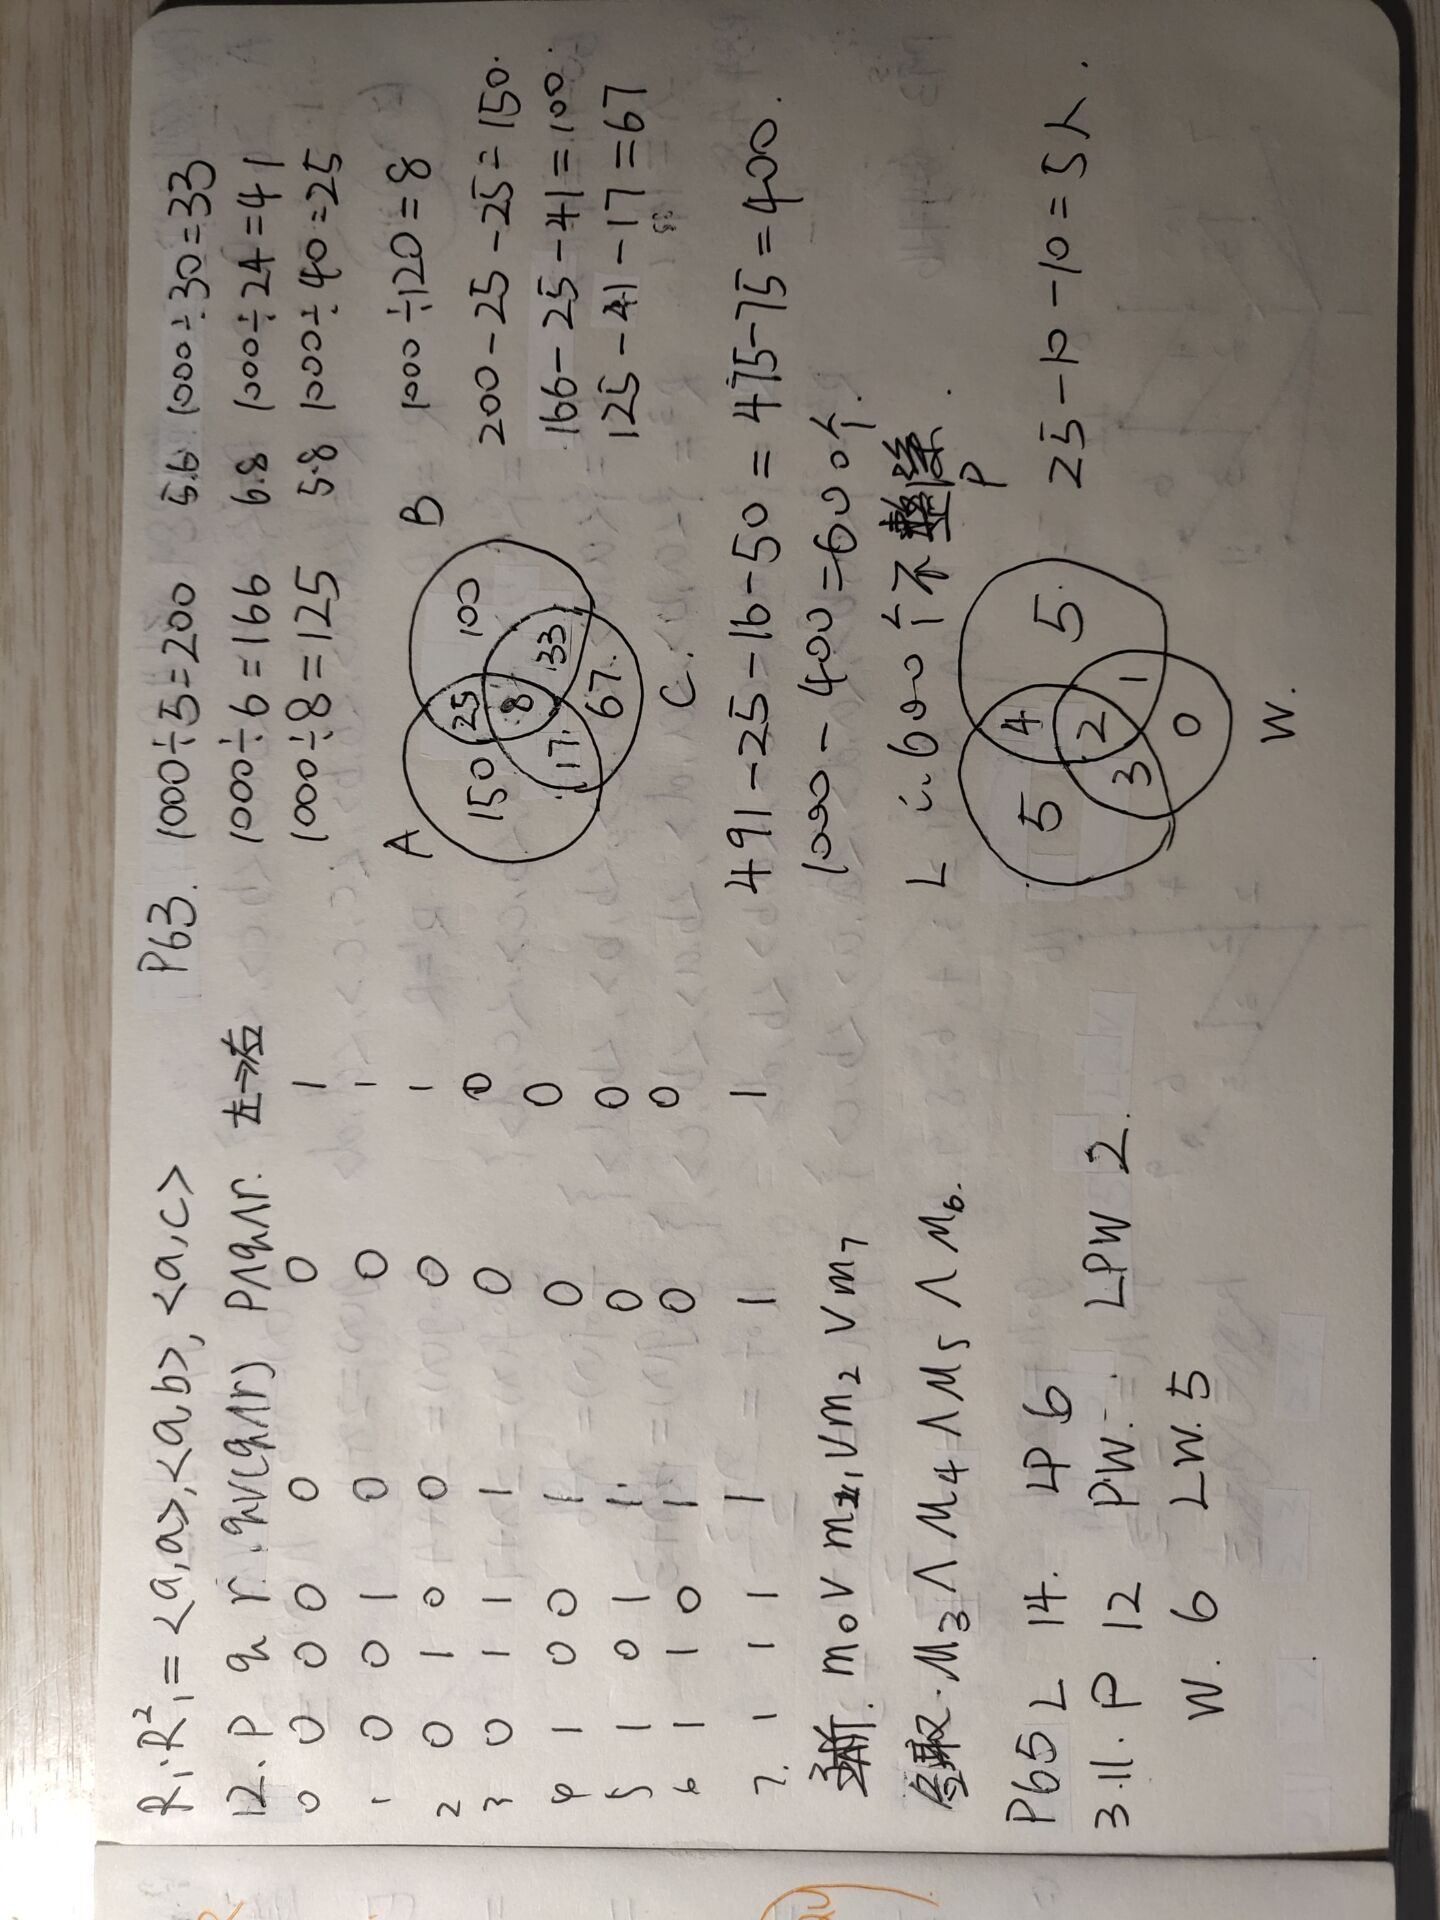 R₁·R₁² = <a,a>,<a,b>,<a,c>
12. P q r. qV(q∧r) P∧q∧r. 左→右
0 0 0 0 0 0 1
1 0 0 1 0 0 1
2 0 1 0 0 0 1
3 0 1 1 1 0 0
4 1 0 0 1 0 0
5 1 0 1 1 0 0
6 1 1 0 1 0 0
7. 1 1 1 1 1 1
主析. m₀ V m₁ V m₂ V m₇
合取. M₃ ∧ M₄ ∧ M₅ ∧ M₆.
P65 L 14. LP 6
3.11. P 12 PW. LPW 2.
W. 6 LW. 5
P63. 1000÷5=200 5.6 1000÷30=33
1000÷6=166 6.8 1000÷24=41
1000÷8=125 5.8 1000÷40=25
A B 1000÷120=8
150 25 100
200-25-25=150.
8
17. 33 166-25-41=100.
67. 125-41-17=67
C.
491-25-16-50 = 475-75=400.
1000-400=600个.
L ∴600个不整除.
P
4
5 5. 25-10-10=5人.
2
3 1
0
W.